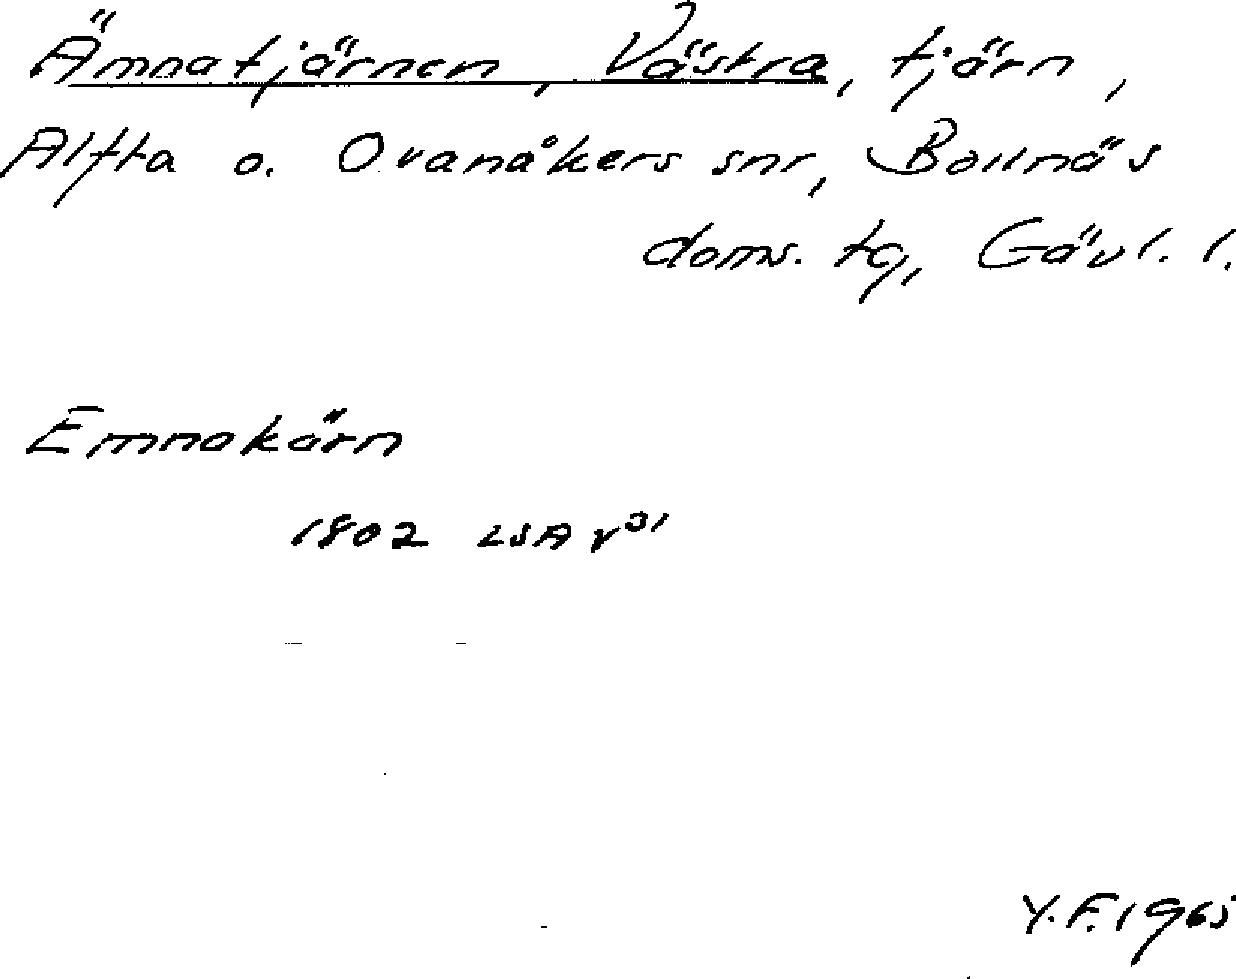 Ämnatjärnen, Västra, tjärn,
Alfta o. Ovanåkers snr, Bollnäs
doms. tg, Gävl. l.
Emnakärn
1802 LSA v³¹
Y.F. 1965